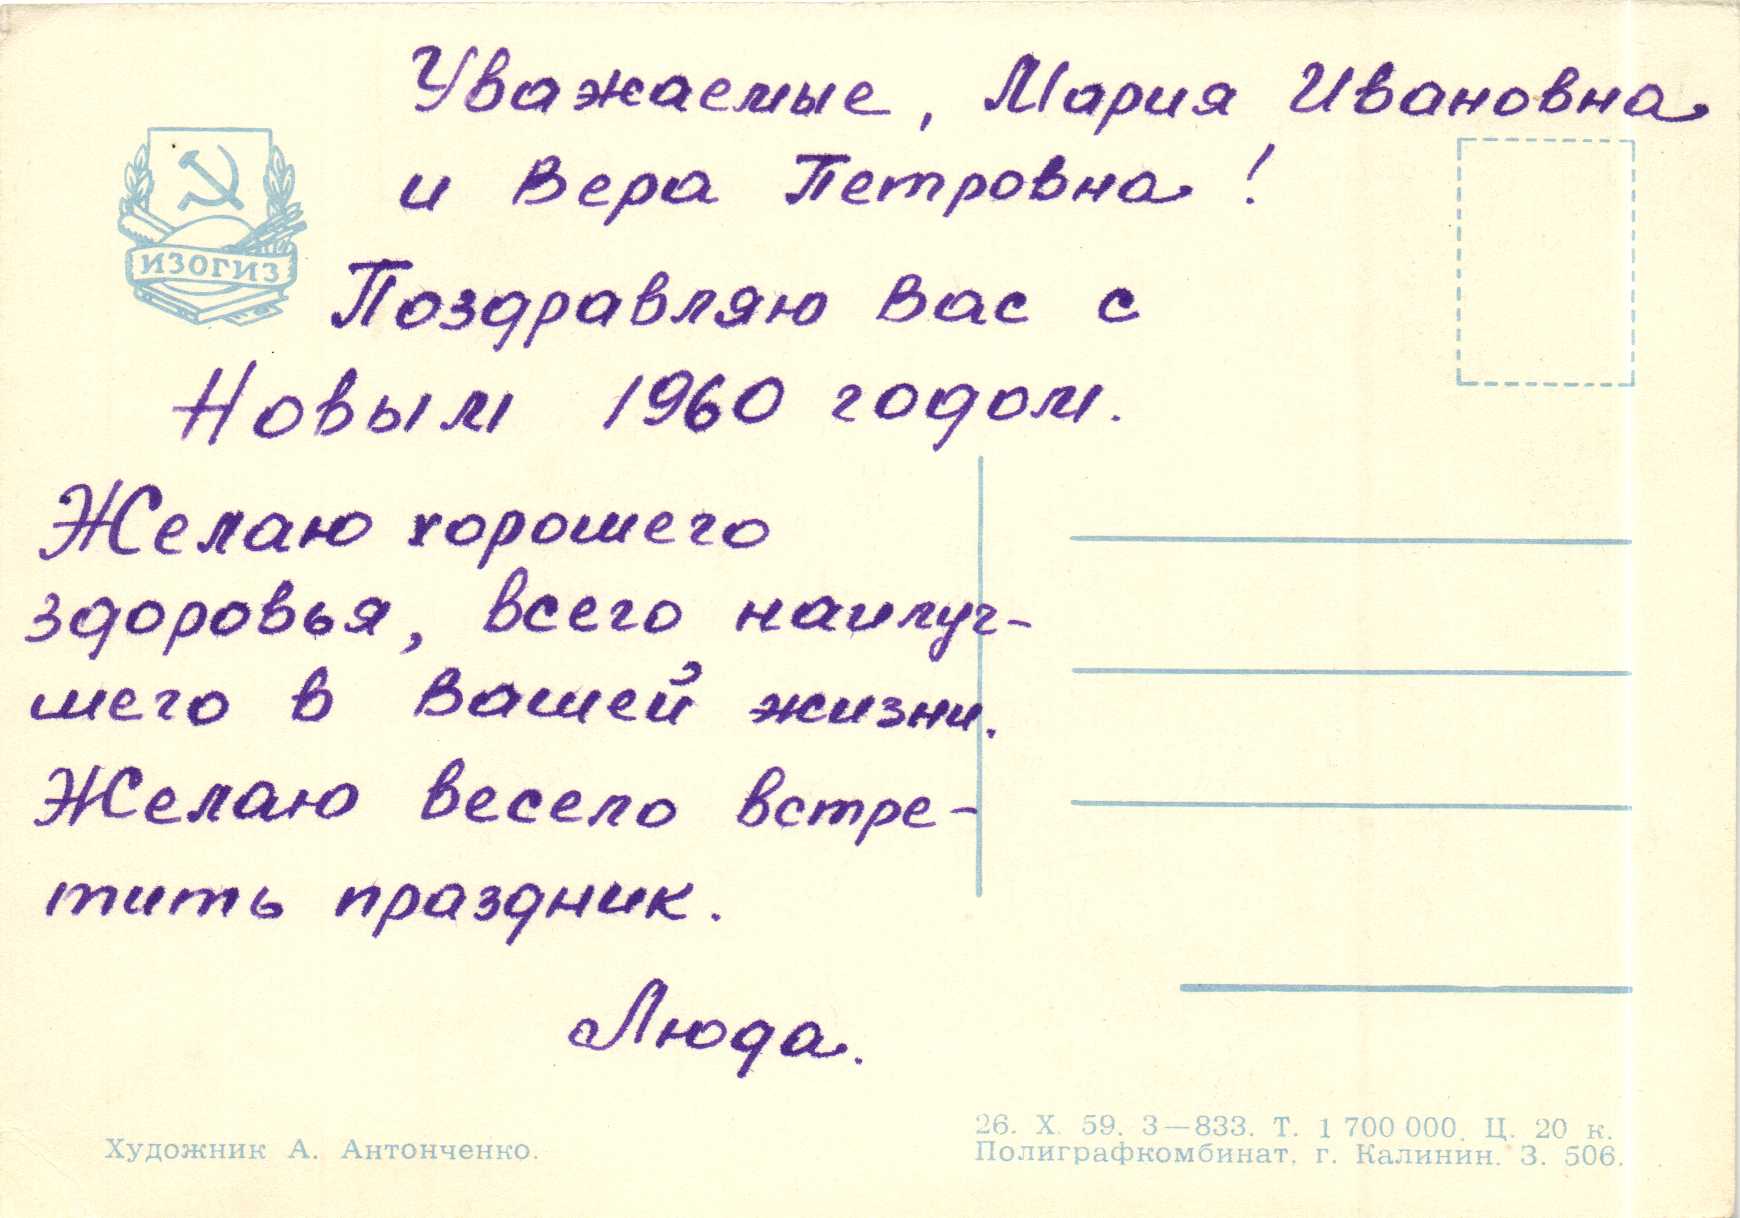 Уважаемые, Мария Ивановна
и Вера Петровна!
ИЗОГИЗ
Поздравляю Вас с
Новым 1960 годом.
Желаю хорошего
здоровья, всего наилуч-
шего в Вашей жизни.
Желаю весело встре-
тить праздник.
Люда.
Художник А. Антонченко.
26. X. 59. З—833. Т. 1 700 000. Ц. 20 к.
Полиграфкомбинат, г. Калинин. З. 506.